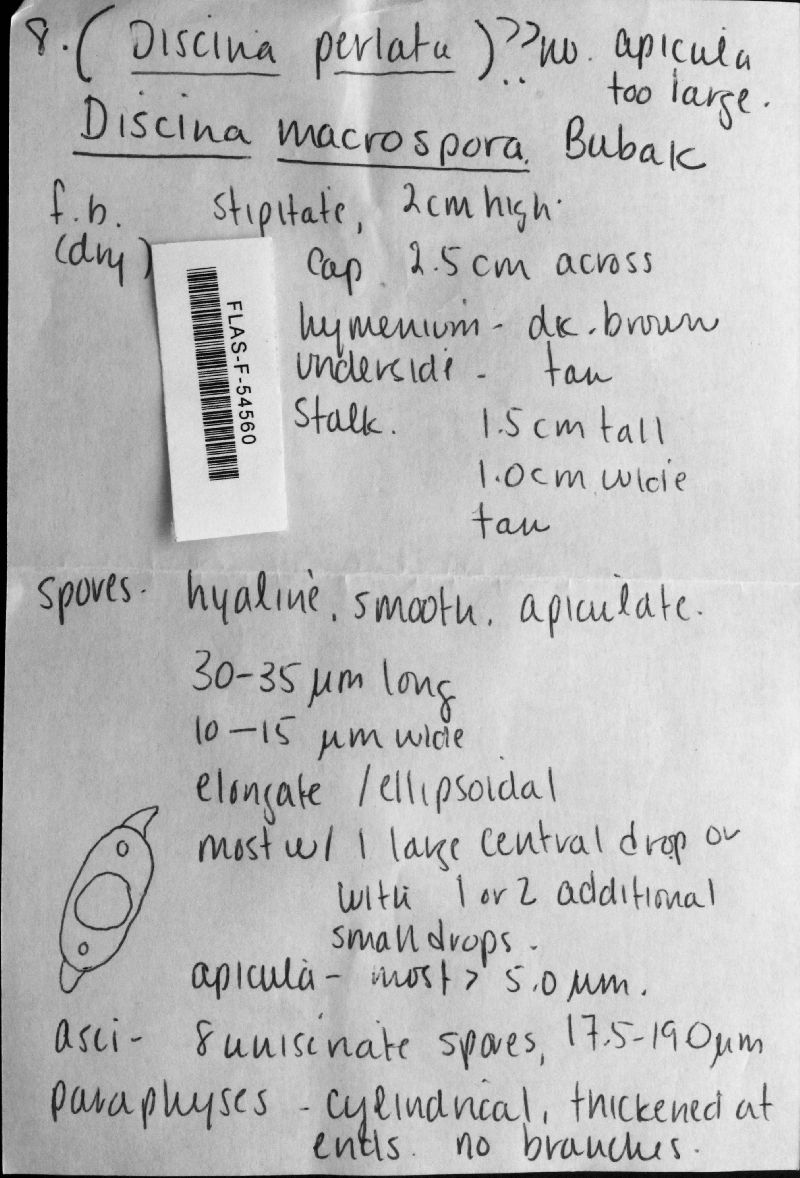 8. (Discina perlata)?? no. apicula
too large.
Discina macrospora. Bubak
f.b. stipitate, 2cm high.
(dry) cap. 2.5cm across
hymenium - dk. brown
underside - tan
Stalk. 1.5cm tall
1.0cm wide
tan
FLAS-F-54560
spores. hyaline, smooth, apiculate.
30-35 µm long
10-15 µm wide
elongate /ellipsoidal
most w/ 1 large central drop or
with 1 or 2 additional
small drops.
apicula - most > 5.0 µm.
asci- 8 uniseriate spores, 17.5-19.0µm
paraphyses - cylindrical, thickened at
ends. no branches.